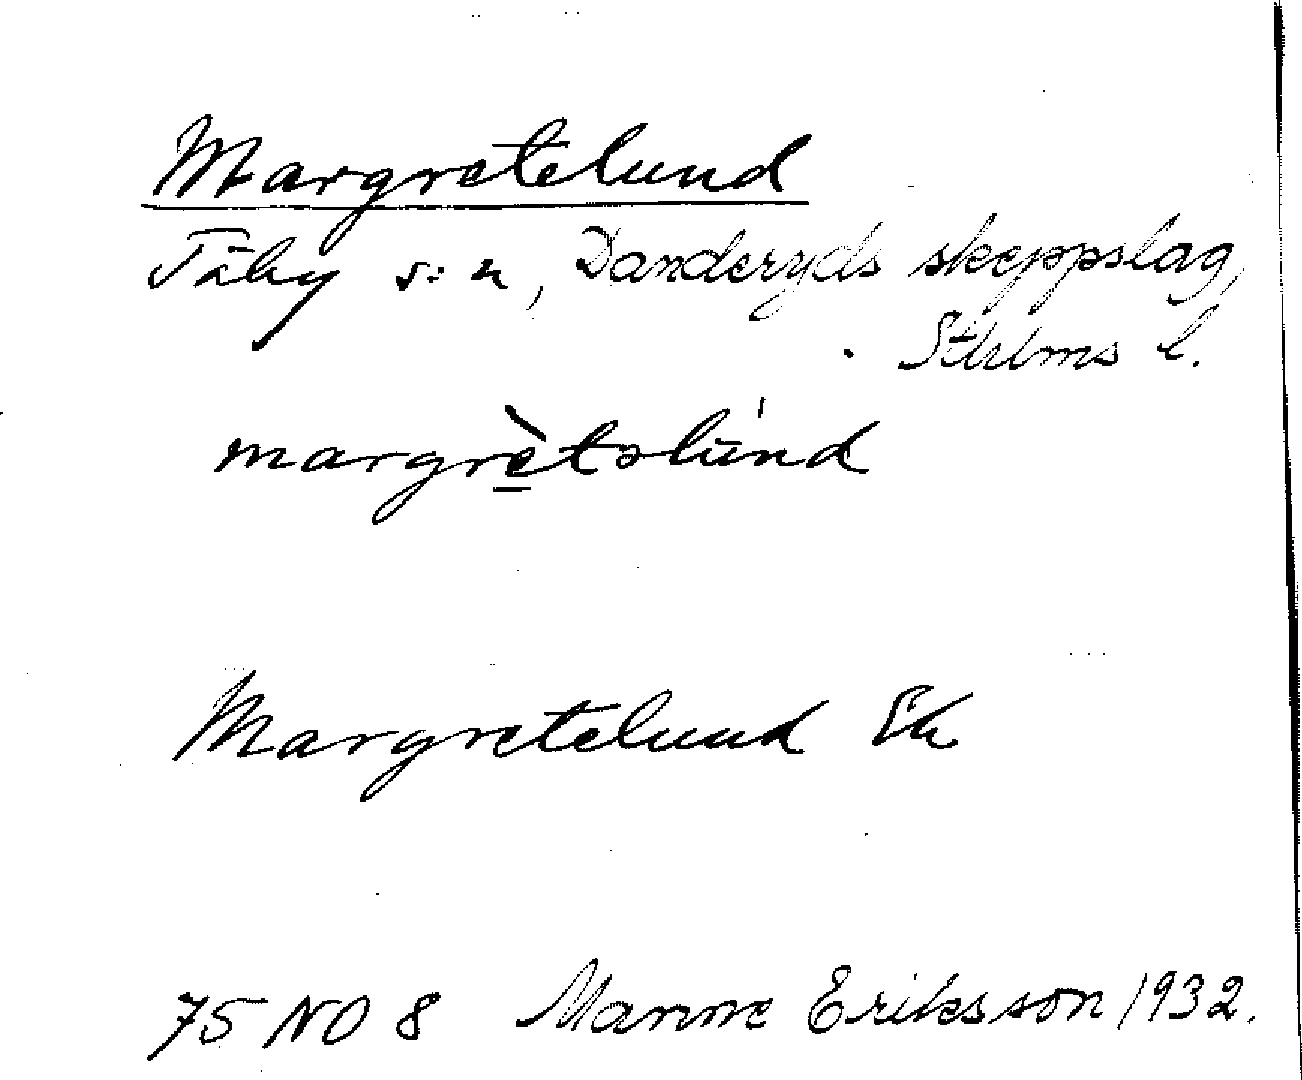 Margretelund
Täby s:n, Danderyds skeppslag,
Sthlms l.
margrètəlùnd
Margretelund Ek
75 NO 8 Manne Eriksson 1932.